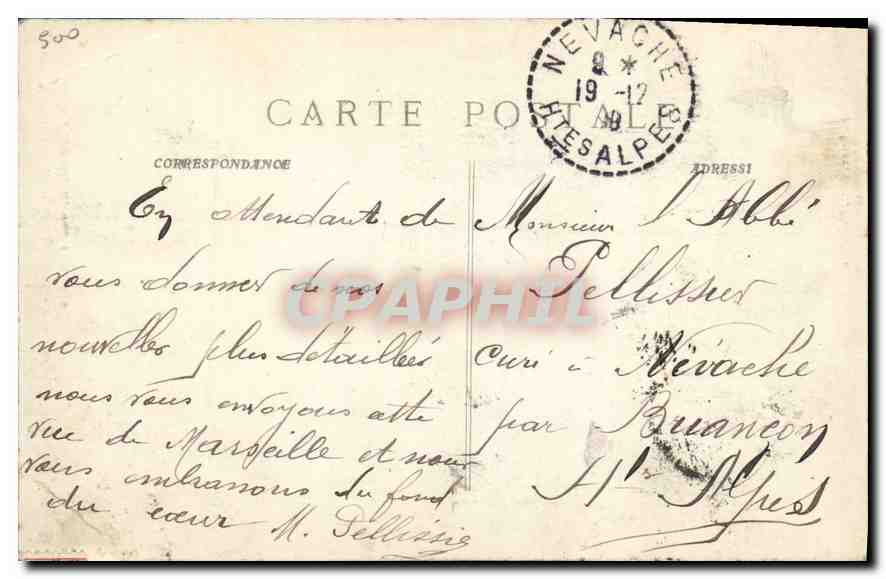 500
NEVACHE
9 *
19 -12
HTES ALPES
CARTE POSTALE
CORRESPONDANCE
ADRESSE
En attendant de
vous donner de nos
nouvelles plus détaillées
nous vous envoyons cette
vue de Marseille et nous
vous embrassons du fond
du cœur M. Pellissier
Monsieur l'Abbé
Pellissier
Curé à Névache
par Briançon
Htes Alpes
CPAPHIL